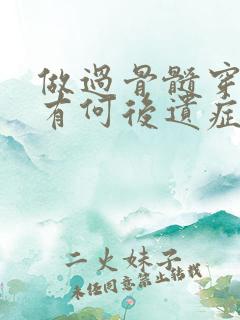 做過骨髓穿
有何後遺症
二火妹子
未經同意禁止轉載